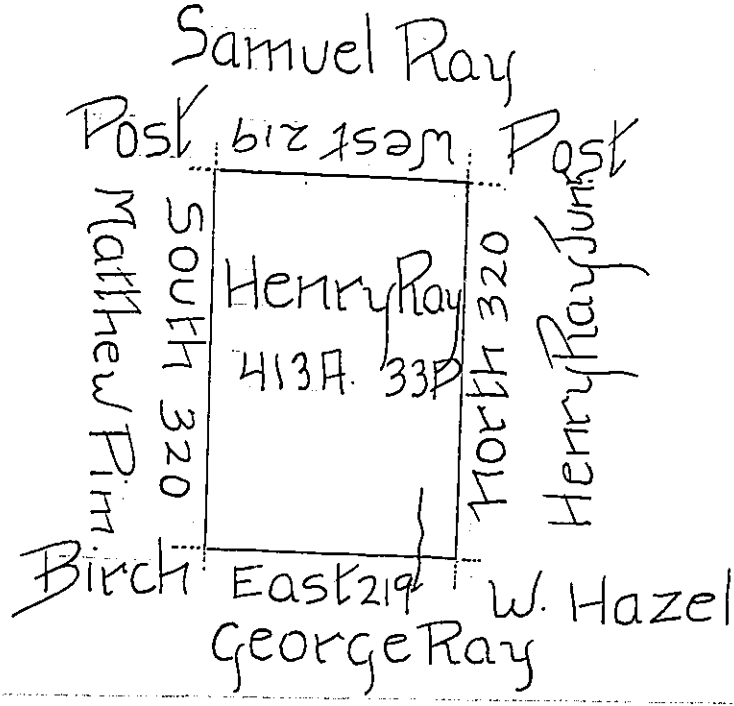 Samuel Ray
Post West 219 Post
Matthew Pim
South 320
Henry Ray
413A. 33P
North 320
Henry Ray Jun.
Birch East 219 W. Hazel
George Ray